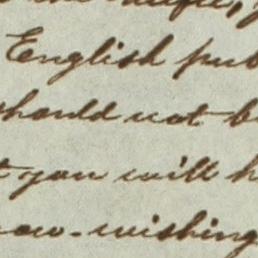 English pub
should not b
t you will h
ow-wishing